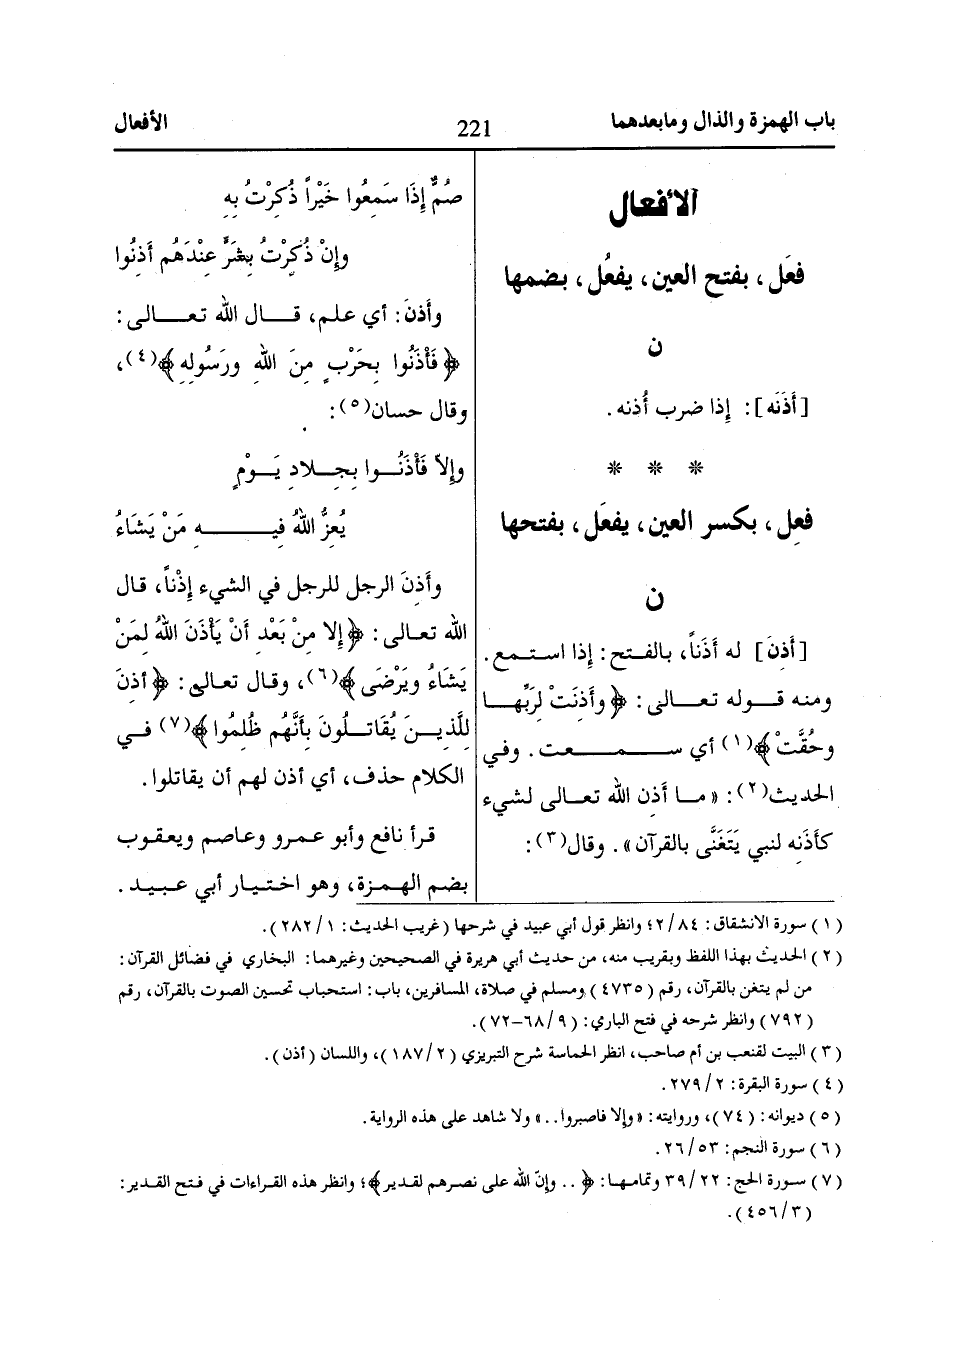 باب الهمزة والذال ومابعدهما
221
الأفعال
الأفعال
فعَل، بفتح العين، يفعُل، بضمها
ن
[أَذَنَه]: إذا ضرب أُذنه.
* * *
فعِل، بكسر العين، يفعَل، بفتحها
ن
[أَذِنَ] له أَذَناً، بالفتح: إذا استمع.
ومنه قوله تعالى: ﴿وأَذِنَتْ لِرَبِّها
وحُقَّتْ﴾(١) أي سمعت. وفي
الحديث(٢): «ما أذن الله تعالى لشيء
كأَذَنه لنبي يَتَغَنَّى بالقرآن». وقال(٣):
صُمٌّ إِذَا سَمِعُوا خَيْراً ذُكِرْتُ بِهِ
وإِنْ ذُكِرْتُ بِشَرٍّ عِنْدَهُم أَذِنُوا
وأَذنَ: أي علم، قال الله تعالى:
﴿فَأْذَنُوا بِحَرْبٍ مِنَ اللهِ ورَسُولِهِ﴾(٤)،
وقال حسان(٥):
وإِلاّ فَأْذَنُوا بِجِلادِ يَوْمٍ
يُعِزُّ اللهُ فِيهِ مَنْ يَشَاءُ
وأَذِنَ الرجل للرجل في الشيء إِذْناً، قال
الله تعالى: ﴿إِلا مِنْ بَعْدِ أَنْ يَأْذَنَ اللهُ لِمَنْ
يَشَاءُ ويَرْضَى﴾(٦)، وقال تعالى: ﴿أُذِنَ
لِلَّذِينَ يُقَاتَلُونَ بِأَنَّهُم ظُلِمُوا﴾(٧) في
الكلام حذف، أي أذن لهم أن يقاتلوا.
قرأ نافع وأبو عمرو وعاصم ويعقوب
بضم الهمزة، وهو اختيار أبي عبيد.
(١) سورة الانشقاق: ٢/٨٤؛ وانظر قول أبي عبيد في شرحها (غريب الحديث: ٢٨٢/١).
(٢) الحديث بهذا اللفظ وبقريب منه، من حديث أبي هريرة في الصحيحين وغيرهما: البخاري في فضائل القرآن:
من لم يتغن بالقرآن، رقم (٤٧٣٥) ومسلم في صلاة، المسافرين، باب: استحباب تحسين الصوت بالقرآن، رقم
(٧٩٢) وانظر شرحه في فتح الباري: (٦٨/٩-٧٢).
(٣) البيت لقعنب بن أم صاحب، انظر الحماسة شرح التبريزي (١٨٧/٢)، واللسان (أذن).
(٤) سورة البقرة: ٢٧٩/٢.
(٥) ديوانه: (٧٤)، وروايته: «وإلا فاصبروا..» ولا شاهد على هذه الرواية.
(٦) سورة النجم: ٢٦/٥٣.
(٧) سورة الحج: ٣٩/٢٢ وتمامها: ﴿.. وإنّ الله على نصرهم لقدير﴾؛ وانظر هذه القراءات في فتح القدير:
(٤٥٦/٣).